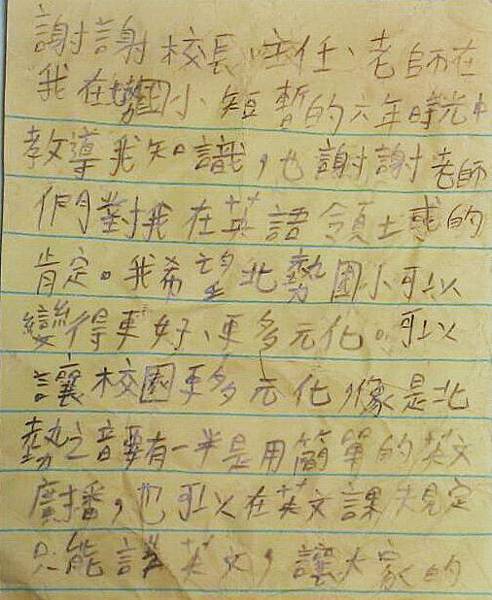 謝謝校長、主任、老師在
我在北勢國小短暫的六年時光中
教導我知識，也謝謝老師
們對我在英語領土或的
肯定。我希望北勢國小可以
變得更好、更多元化。可以
讓校園更多元化，像是北
勢之音要有一半是用簡單的英文
廣播，也可以在英文課規定
只能講英文，讓大家的